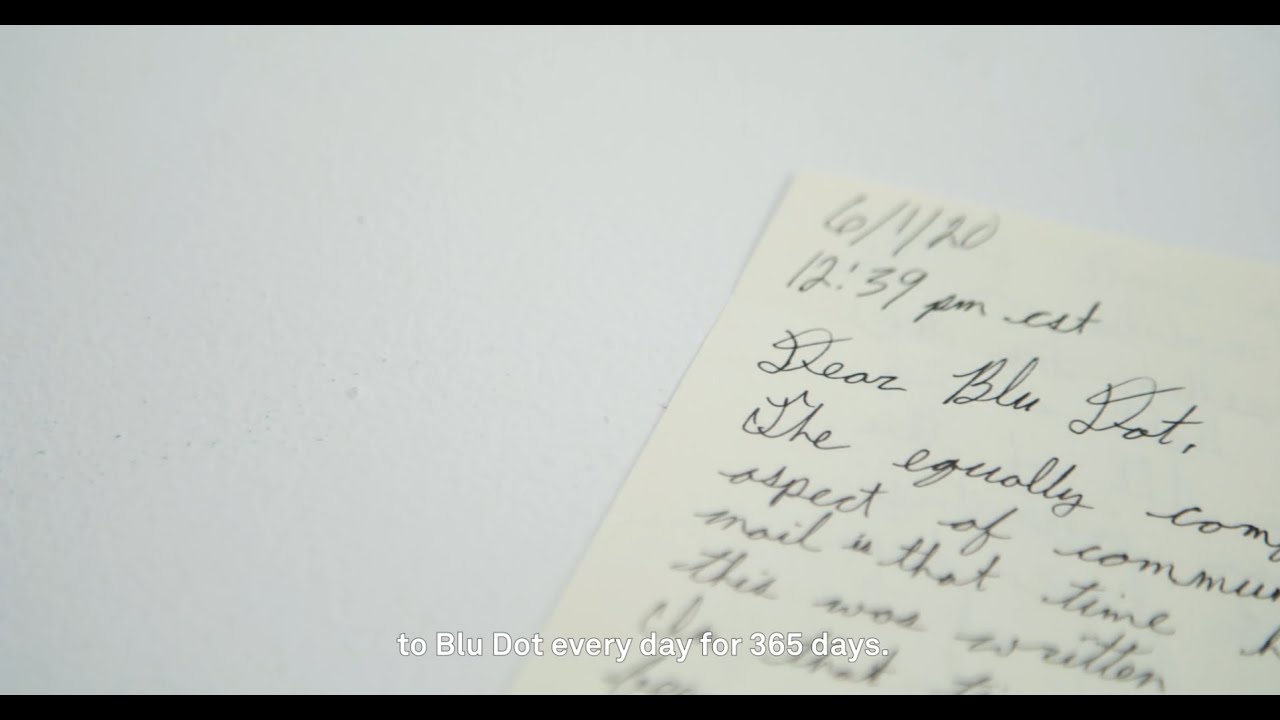 6/1/20
12:39 pm cst
Dear Blu Dot,
The equally
aspect of
mail is that time
this was written
that
to Blu Dot every day for 365 days.